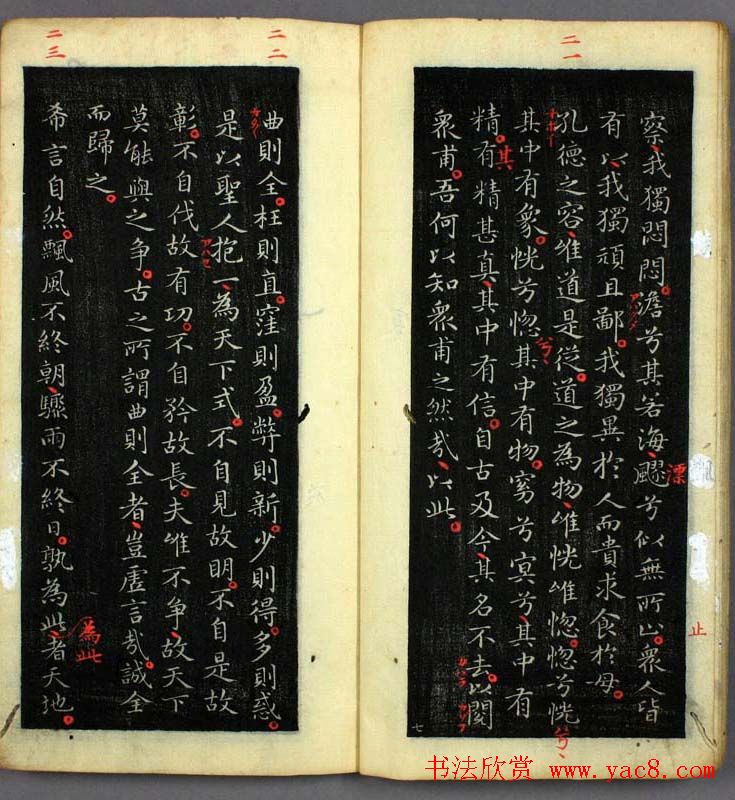 二一
察我獨悶悶澹兮其若海飂兮似無所止眾人皆
有以我獨頑且鄙我獨異於人而貴求食於母
孔德之容唯道是從道之為物唯恍唯惚惚兮恍
其中有象恍兮惚其中有物窈兮冥兮其中有
精有精甚真其中有信自古及今其名不去以閱
眾甫吾何以知眾甫之然哉以此
漂
止
兮
兮
其
七
二二
二三
曲則全枉則直窪則盈弊則新少則得多則惑
是以聖人抱一為天下式不自見故明不自是故
彰不自伐故有功不自矜故長夫唯不爭故天下
莫能與之爭古之所謂曲則全者豈虛言哉誠全
而歸之
希言自然飄風不終朝驟雨不終日孰為此者天地
為此
书法欣赏 www.yac8.com